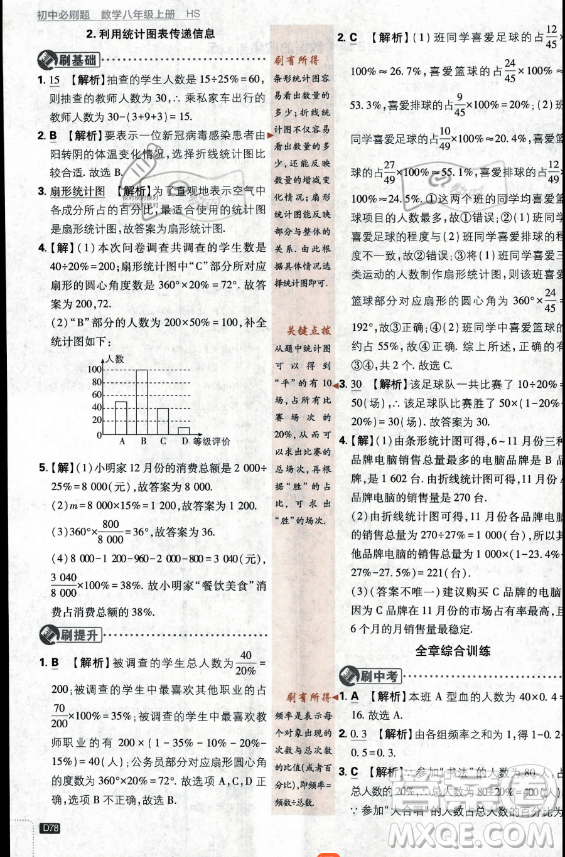 初中必刷题 数学八年级上册 HS
2. 利用统计图表传递信息
刷基础
1. 15 【解析】抽查的学生人数是15÷25%=60,
则抽查的教师人数为30,∴乘私家车出行的
教师人数为30-(3+9+3)=15.
2. B 【解析】要表示一位新冠病毒感染患者由
阳转阴的体温变化情况,选择折线统计图比
较合适.故选B.
3. 扇形统计图 【解析】为了直观地表示空气中
各成分所占的百分比,最适合使用的统计图
是扇形统计图,故答案为扇形统计图.
4. 【解】(1)本次问卷调查共调查的学生数是
40÷20%=200;扇形统计图中“C”部分所对应
扇形的圆心角度数是360°×20%=72°.故答
案为200,72.
(2)“B”部分的人数为200×50%=100,补全
统计图如下:
人数
100
80
60
40
20
0
A B C D 等级评价
5. 【解】(1)小明家12月份的消费总额是2 000÷
25%=8 000(元),故答案为8 000.
(2)m=8 000×15%=1 200,故答案为1 200.
(3)360°×800/8 000=36°,故答案为36.
(4)8 000-1 200-960-2 000-800=3 040(元),
3 040/8 000×100%=38%.故小明家“餐饮美食”消
费占消费总额的38%.
刷提升
1. B 【解析】被调查的学生总人数为40/20%=
200;被调查的学生中最喜欢其他职业的占
70/200×100%=35%;被调查的学生中最喜欢教
师职业的有200×(1-35%-10%-20%-
15%)=40(人);公务员部分对应扇形圆心角
的度数为360°×20%=72°.故选项A、C、D都
正确,选项B不正确,故选B.
D78
刷有所得
条形统计图容
易看出数量的
多少;折线统
计图不仅容易
看出数量的多
少,还能反映
数量的增减变
化情况;扇形
统计图能反映
部分与整体的
关系.由此根
据具体情况选
择统计图即可.
关键点拨
从题中统计图
可以得到
“平”的有10
场,占所有比
赛场次的
20%,从而可
以求出比赛的
总场次,再根
据“胜”的占
比,可求出
“胜”的场次.
刷有所得
频率是表示每
个对象出现的
次数与总次数
的比值(或者百
分比),即频率=
频数÷总数.
2. C 【解析】(1)班同学喜爱足球的占12/45×
100%≈26.7%,喜爱篮球的占24/45×100%≈
53.3%,喜爱排球的占9/45×100%=20%;(2)班
同学喜爱足球的占10/49×100%≈20.4%,喜爱篮
球的占27/49×100%≈55.1%,喜爱排球的占12/49×
100%≈24.5%.①这两个班同学喜爱篮
球项目的人数最多,故①正确.②(1)班同学喜
爱足球的程度与(2)班同学喜爱足球的程
度不一致,故②不正确.③若(1)班同学喜爱三
类运动的人数制作扇形统计图,则该班喜爱
篮球部分对应扇形的圆心角为360°×24/45=
192°.故③正确.④(2)班同学中喜爱篮球的
约占55%,故④正确.综上所述,正确的有①
③④,共2个.故选C.
3. 30 【解析】该足球队一共比赛了10÷20%=
50(场),∴该足球队比赛胜了50×60%=
30(场).
4. 【解】(1)由条形统计图可得,6~11月份三种
品牌电脑销售总量最多的电脑品牌是B品
牌,是1 602台.由折线统计图可得,11月份A
品牌电脑的销售量是270台.
(2)由折线统计图可得,11月份电脑的销售
总量为270÷27%=1 000(台),所以其
他品牌电脑的销售总量为1 000×(1-23.4%-
27%-27.5%)=221(台).
(3)(答案不唯一)建议买C品牌电脑.
因为C品牌11月份的市场占有率最高,且
6个月的月销售量最稳定.
全章综合训练
刷中考
1. A 【解析】本班A型血的人数为40×0.4=
16.故选A.
2. 0.3 【解析】由各组频率之和为1,得1-0.2-
0.5=0.3.
3. C 【解析】∵参加“书法”的人数为80,占
总人数的20%,∴总人数为80÷20%=400,
∵参加“大合唱”的人数占总人数的百分比为
MXQE.COM